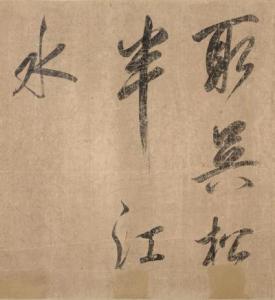 取吴松
半江
水